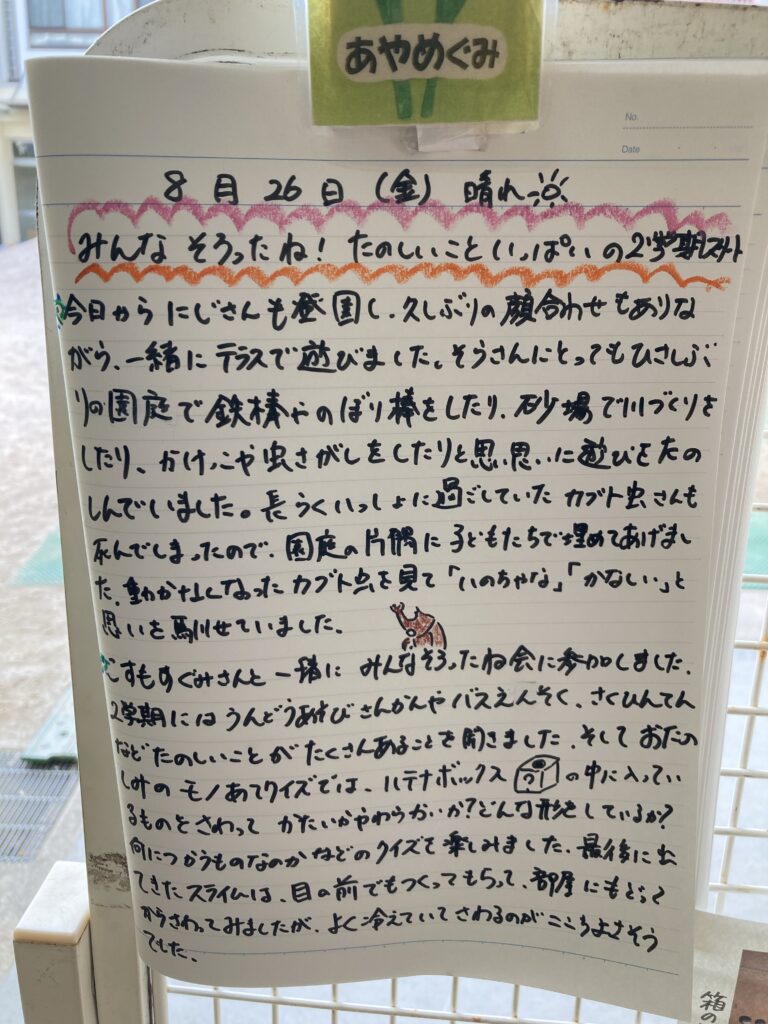 あやめぐみ
No.
Date
8月26日(金) 晴れ
みんなそろったね! たのしいこといっぱいの2学期スタート
今日からにじさんも登園し、久しぶりの顔合わせもありな
がら、一緒にテラスで遊びました。そうさんにとってもひさしぶ
りの園庭で鉄棒やのぼり棒をしたり、砂場で川づくりを
したり、かけっこや虫さがしをしたりと思い思いに遊びをたの
しんでいました。長らくいっしょに過ごしていたカブト虫さんも
死んでしまったので、園庭の片隅に子どもたちで埋めてあげまし
た。動かなくなったカブト虫を見て「いのちゃな」「かなしい」と
思いを馳せていました。
こすもすぐみさんと一緒にみんなそろったね会に参加しました。
2学期にはうんどうあそびさんかんやバスえんそく、さくひんてん
などたのしいことがたくさんあることを聞きました。そしておたの
しみのモノあてクイズでは、ハテナボックス ? の中に入ってい
るものをさわって かたいかやわらかいか?どんな形をしているか?
何につかうものなのかなどのクイズを楽しみました。最後に出
てきたスライムは、目の前でもつくってもらって、部屋にもどって
からさわってみましたが、よく冷えていてさわるのがここちよさそう
でした。
箱の